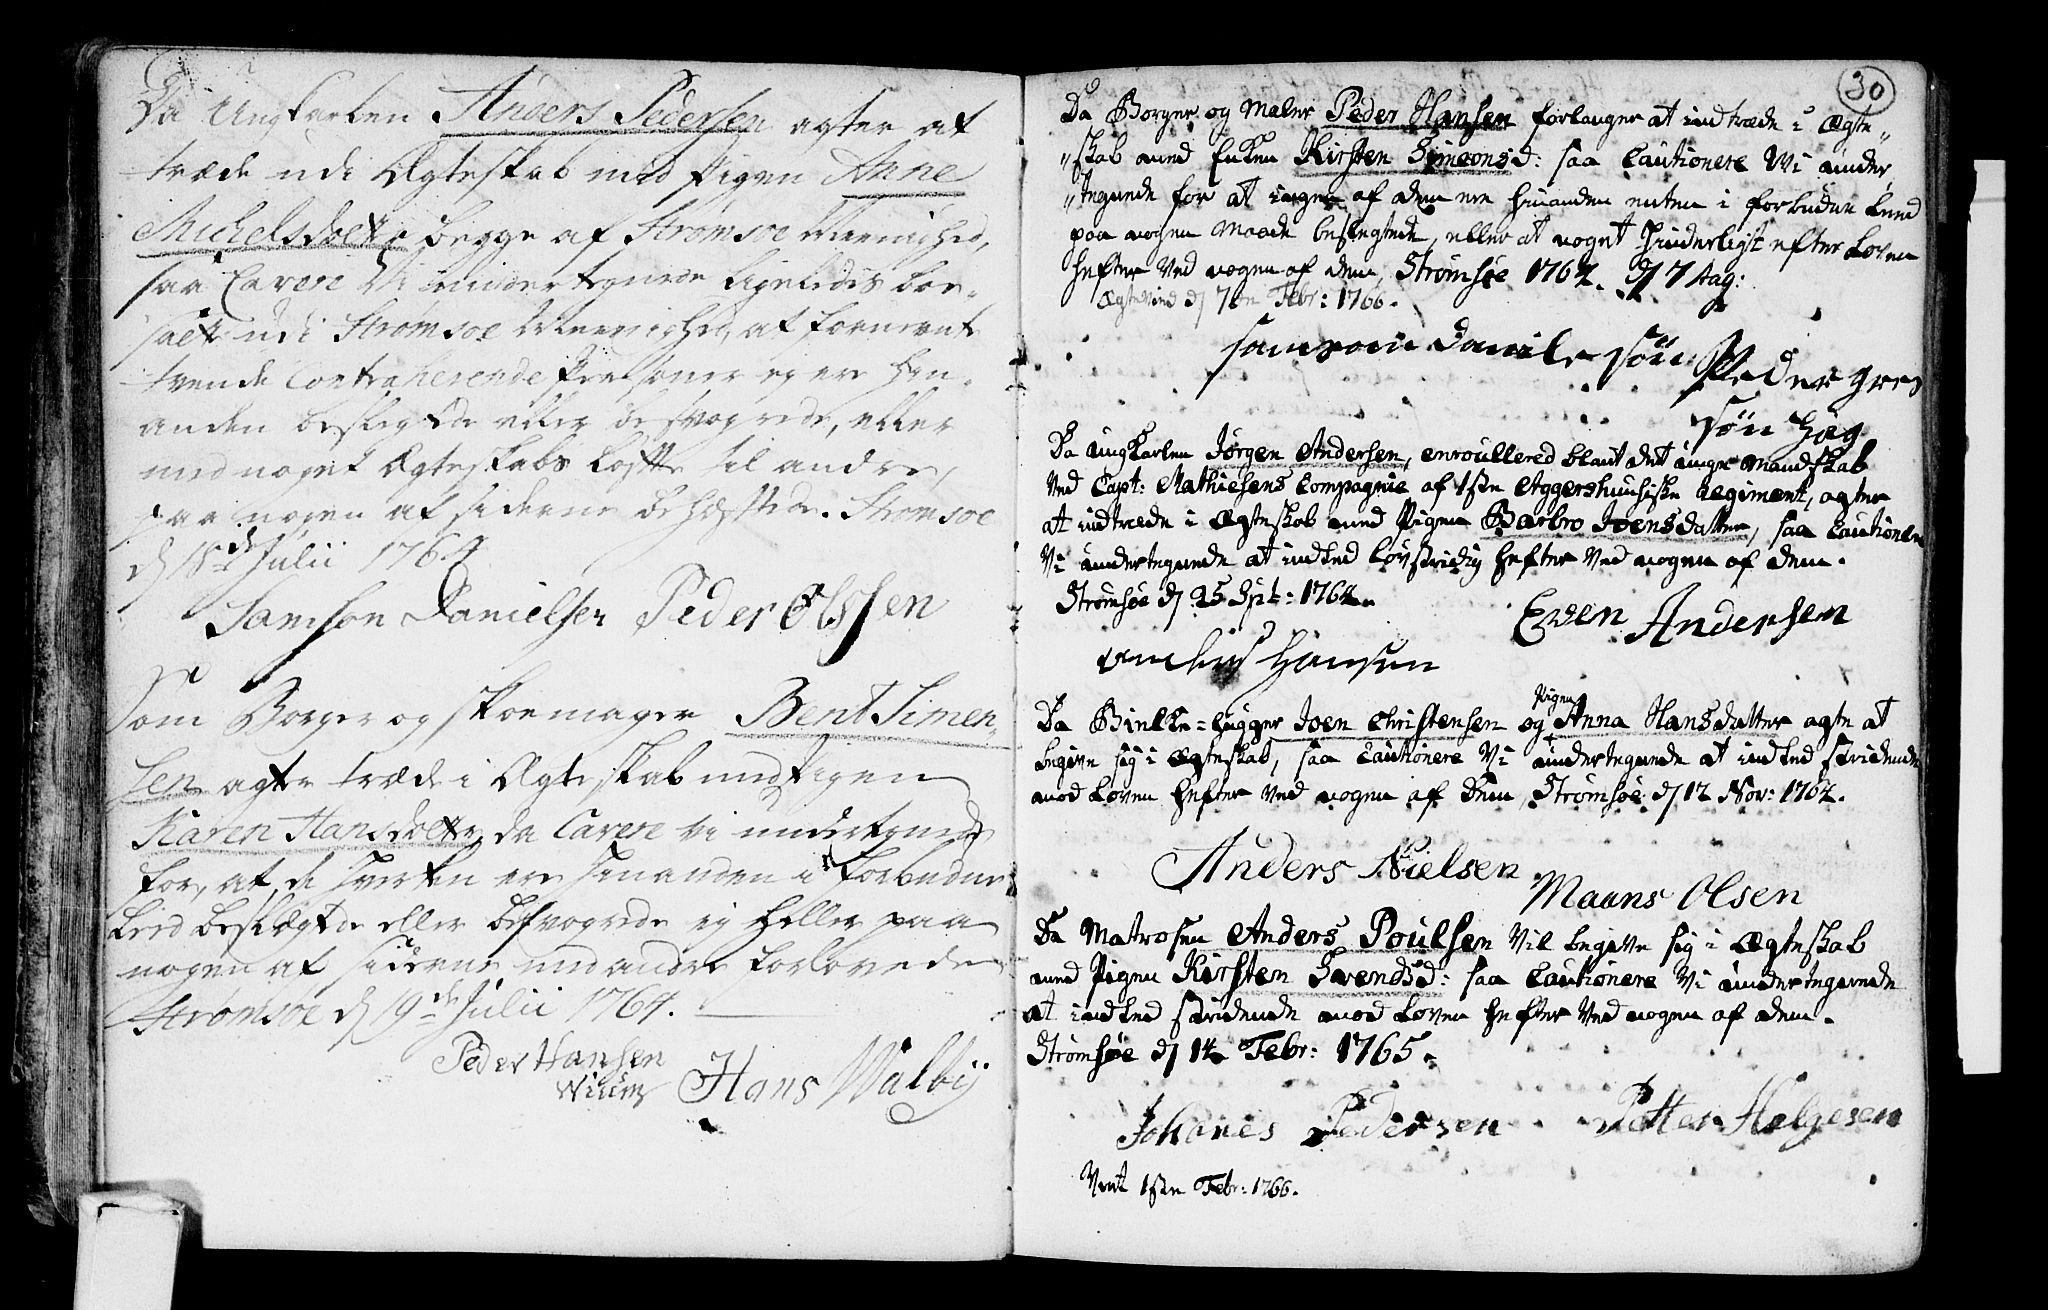 Da Ungkarlen Anders Pedersen agter at
træde udi Ægteskab med Pigen Anne
Michelsdotter begge af Strømsoe Meenighed,
saa Cavere Vi undertegnede ligeledes boe-
satte udi Strømsoe Meenighed, at foermente
tvende Contraherende Personer ey ere Hin-
anden beslegtede eller besvogrede, eller
med noget Ægteskabs Løfte til andre,
paa nogen af siderne behæftede. Strømsoe
d 18de Julii 1764
Samson Danielsen Peder Olssen
Som Borger og Skoemager Bent Simen-
sen agter træde i Ægteskab med Pigen
Karen Hansdotter, da Cavere vi undertegnede
for, at de hverken ere hinanden i forbudne
Leed beslægtede eller besvogrede ey heller paa
nogen af siderne med andre forlovede
Strømsøe d 19de Julii 1764.
Peder Hansen
Hans Walbÿ
30
Da Borger og Maler Peder Hansen forlanger at indtræde i Ægte„
„skab med Enken Kirsten Simonsd: saa Cautionere Vi under„
„tegnede for at ingen af dem ere hinanden enten i forbudne Leed
paa nogen Maade beslegtede, eller at noget Hinderligt efter Loven
hefter Ved nogen af dem, Strømsøe 1764. d 7 Aug:
Ægteviet d 7de Febr: 1766.
Samson Daniels søn Peder
søn
Da ungkarlen Jørgen Andersen, enroullered blant det unge Mandskab
Ved Capt: Mathiesens Compagnie af 1ste Aggershuusiske Regiment, agter
at indtræde i Ægteskab med Pigen Barbro Joensdatter, saa Cautionere
Vi undertegnede at intked Lovstridig hefter Ved nogen af dem.
Strømsøe d 25 Spt: 1764.
Even Andersen
Hansen
Da Bielke-hugger Joen Christensen og Pigen Anna Hansdatter agte at
begive sig i Ægteskab, saa Cautionere Vi undertegnede at intked stridende
mod Loven hefter Ved nogen af Dem, Strømsøe d 12 Nov: 1764.
Anders Nielsen
Maans Olsen
Da Matrosen Anders Poulsen Vil begive sig i Ægteskab
med Pigen Kirsten Svendsd: saa Cautionere Vi undertegnede
at intked stridende mod Loven hefter Ved nogen af dem.
Strømsøe d 14 Febr: 1765.
Johanes Pedersen Petter Helgesen
Viet 1ste Febr: 1766.